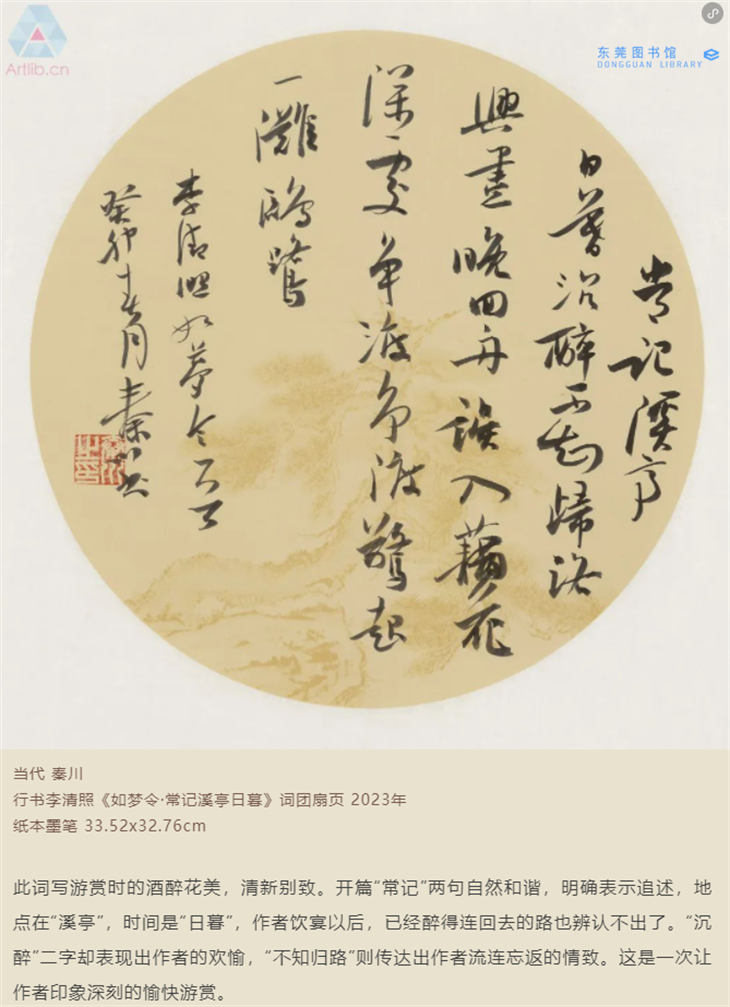 Artlib.cn
东莞图书馆
DONGGUAN LIBRARY
常記溪亭
日暮沉醉不知歸路
興盡晚回舟誤入藕花
深處爭渡爭渡驚起
一灘鷗鷺
李清照如夢令
癸卯 月秦川
当代 秦川
行书李清照《如梦令·常记溪亭日暮》词团扇页 2023年
纸本墨笔 33.52x32.76cm
此词写游赏时的酒醉花美，清新别致。开篇“常记”两句自然和谐，明确表示追述，地
点在“溪亭”，时间是“日暮”，作者饮宴以后，已经醉得连回去的路也辨认不出了。“沉
醉”二字却表现出作者的欢愉，“不知归路”则传达出作者流连忘返的情致。这是一次让
作者印象深刻的愉快游赏。